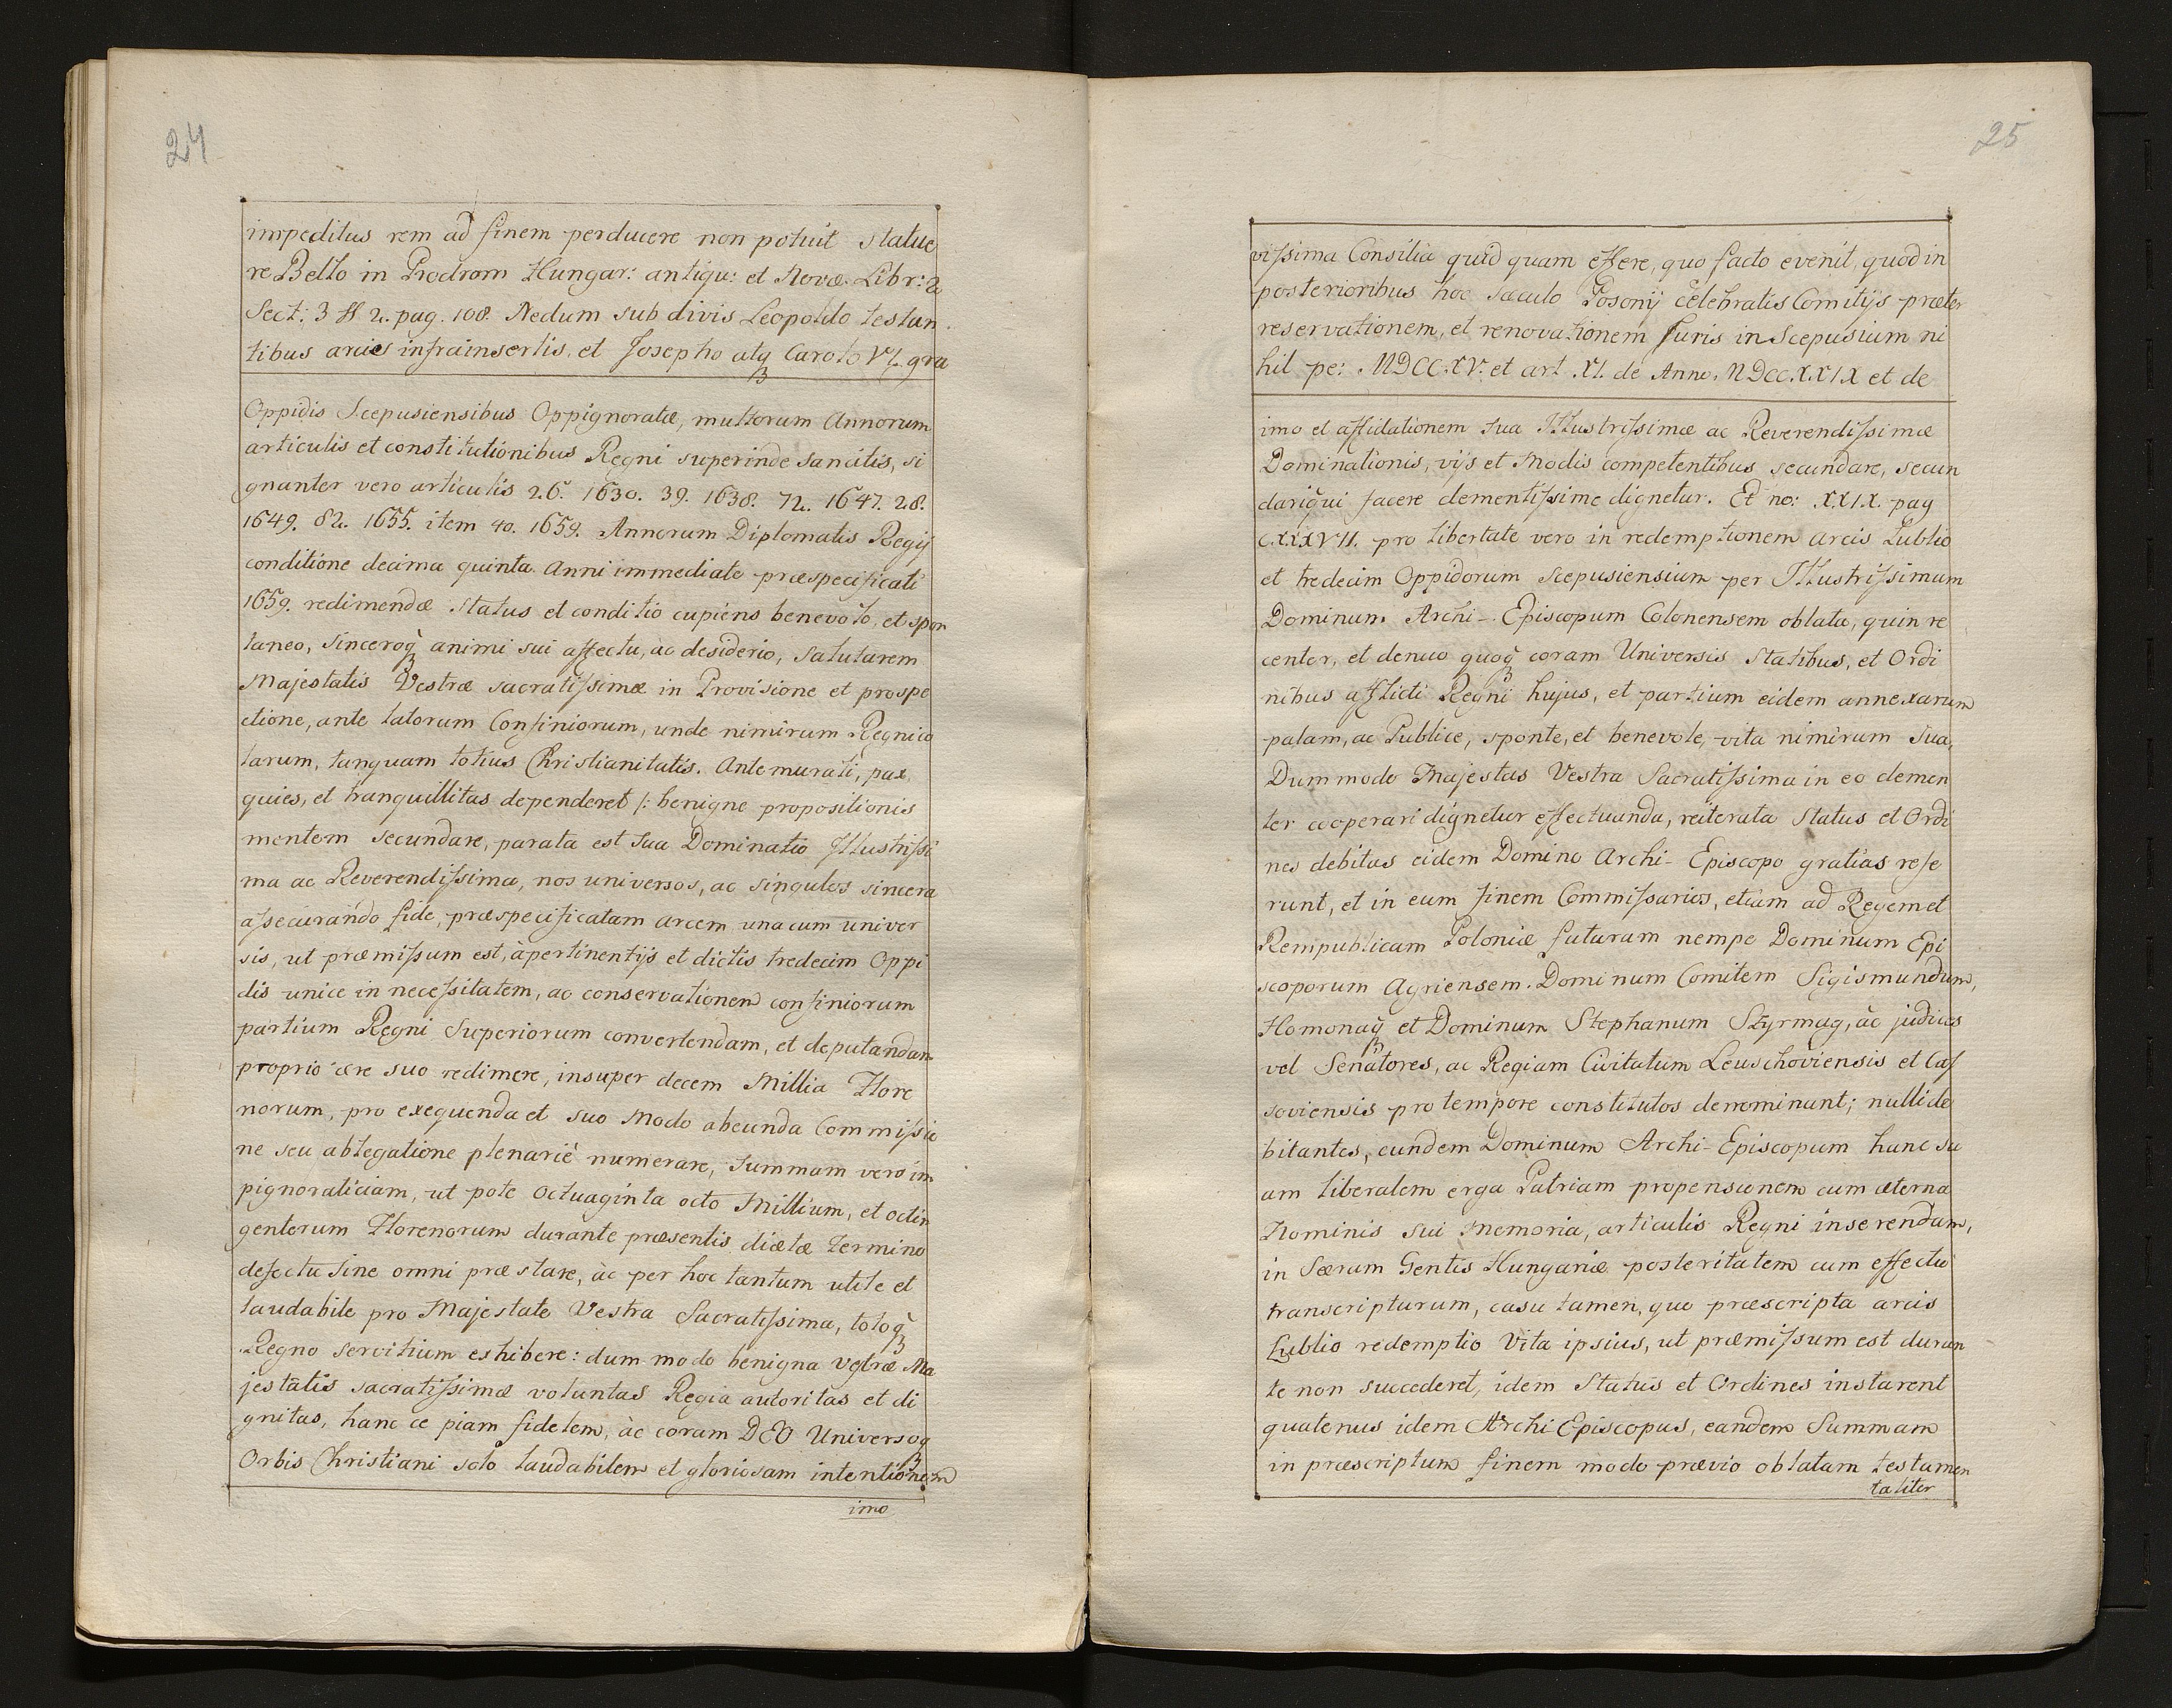 24
impeditus rem ad finem perducere non potuit statue
re Bello in Prodrom Hungar: antiqu: et Novæ. Libr: 2
Sect: 3 § 2. pag. 108. Nedum sub divis Leopoldo testan
tibus arcies infrainsertis, et Josepho atq Carolo VI. gra
Oppidis Scepusiensibus Oppignoratæ, multorum Annorum
articulis et constitutionibus Regni superinde sancitis, si
gnanter vero articulis 26. 1630. 39. 1638. 72. 1647. 28.
1649. 82. 1655. item 40. 1659. Annorum Diplomatis Regij
conditione decima quinta Anni immediate præspecificati
1659. redimendæ Status et conditio cupiens benevolo, et spon
taneo, sinceroq animi sui affectu, ac desiderio, salutarem
Majestatis Vestræ sacratissimæ in Provisione et prospe
ctione, ante latorum Confiniorum, unde nimirum Regnico
larum, tanquam totius Christianitatis. Antemurali, pax,
quies, et tranquillitas dependeret /: benigne propositionis
mentem secundare, parata est sua Dominatio Illustrissi
ma ac Reverendissima, nos universos, ac singulos sincera
assecurando fide, præspecificatam arcem una cum univer
sis, ut præmissum est, àpertinentijs et dictis tredecim Oppi
dis unice in necessitatem, ac conservationem confiniorum
partium Regni Superiorum convertendam, et deputandam
proprio ære suo redimere, insuper decem Millia Flore
norum, pro exequenda et suo modo abeunda Commissio
ne seu ablegatione plenariè numerare, summam vero im
pignoraticiam, ut pote Octuaginta octo Millium, et octin
gentorum Florenorum durante præsentis diætæ termino
defectu sine omni præstare, àc per hoc tantum utile et
laudabile pro Majestate Vestra Sacratissima, totoq
Regno servitium exhibere: dum modo benigna vestræ Ma
jestatis sacratissimæ voluntas Regia autoritas et di
gnitas, hanc ce piam fidelem, àc coram DEO Universoq
Orbis Christiani solo laudabilem et gloriosam intentionem
imo
25
vissima Consilia quid quam essere, quo facto evenit, quod in
posterioribus hoc sæculo Posonij celebratis Comitijs præter
reservationem, et renovationem Juris in Scepusium ni
hil pe: MDCC.XV. et art. XI. de Anno. MDCC.XXIX et de
imo et assidationem sua Illustrissimæ ac Reverendissimæ
Dominationis, vijs et Modis competentibus secundare, secun
dariqui facere clementissime dignetur. Et no: XXIX. pag
CXXXVII. pro libertate vero in redemptionem arcis Lublio
et tredecim Oppidorum Scepusiensium per Illustrissimum
Dominum Archi-Episcopum Colonensem oblata, quin re
center, et denuo quoq coram Universis Statibus, et Ordi
nibus afflicti Regni hujus, et partium eidem annexarum
palam, ac Publice, sponte, et benevole, vita nimirum sua,
Dum modo Majestas Vestra Sacratissima in eo clemen
ter cooperari dignetur effectuanda, reiterata Status et Ordi
nes debitas eidem Domino Archi-Episcopo gratias refe
runt, et in eum finem Commissarios, etiam ad Regem et
Rempublicam Poloniæ futuram nempe Dominum Epi
scoporum Agriensem. Dominum Comitem Sigismundum,
Homonaq et Dominum Stephanum Szyrmag, àc judices
vel Senatores, ac Regiam Civitatum Leuschoviensis et Cas
soviensis pro tempore constitutos denominant; nulli de
bitantes, eundem Dominum Archi-Episcopum hanc su
am liberalem erga Patriam propensionem cum æterna
Nominis sui memoria, articulis Regni inserendam,
in Seram Gentis Hungariæ posteritatem cum effectu
transcripturum, casu tamen, quo præscripta arcis
Lublio redemptio Vita ipsius, ut præmissum est duran
te non succederet, idem Status et Ordines instarent
quatenus idem Archi Episcopus, eandem Summam
in præscriptum finem modo prævio oblatam testamen
taliter